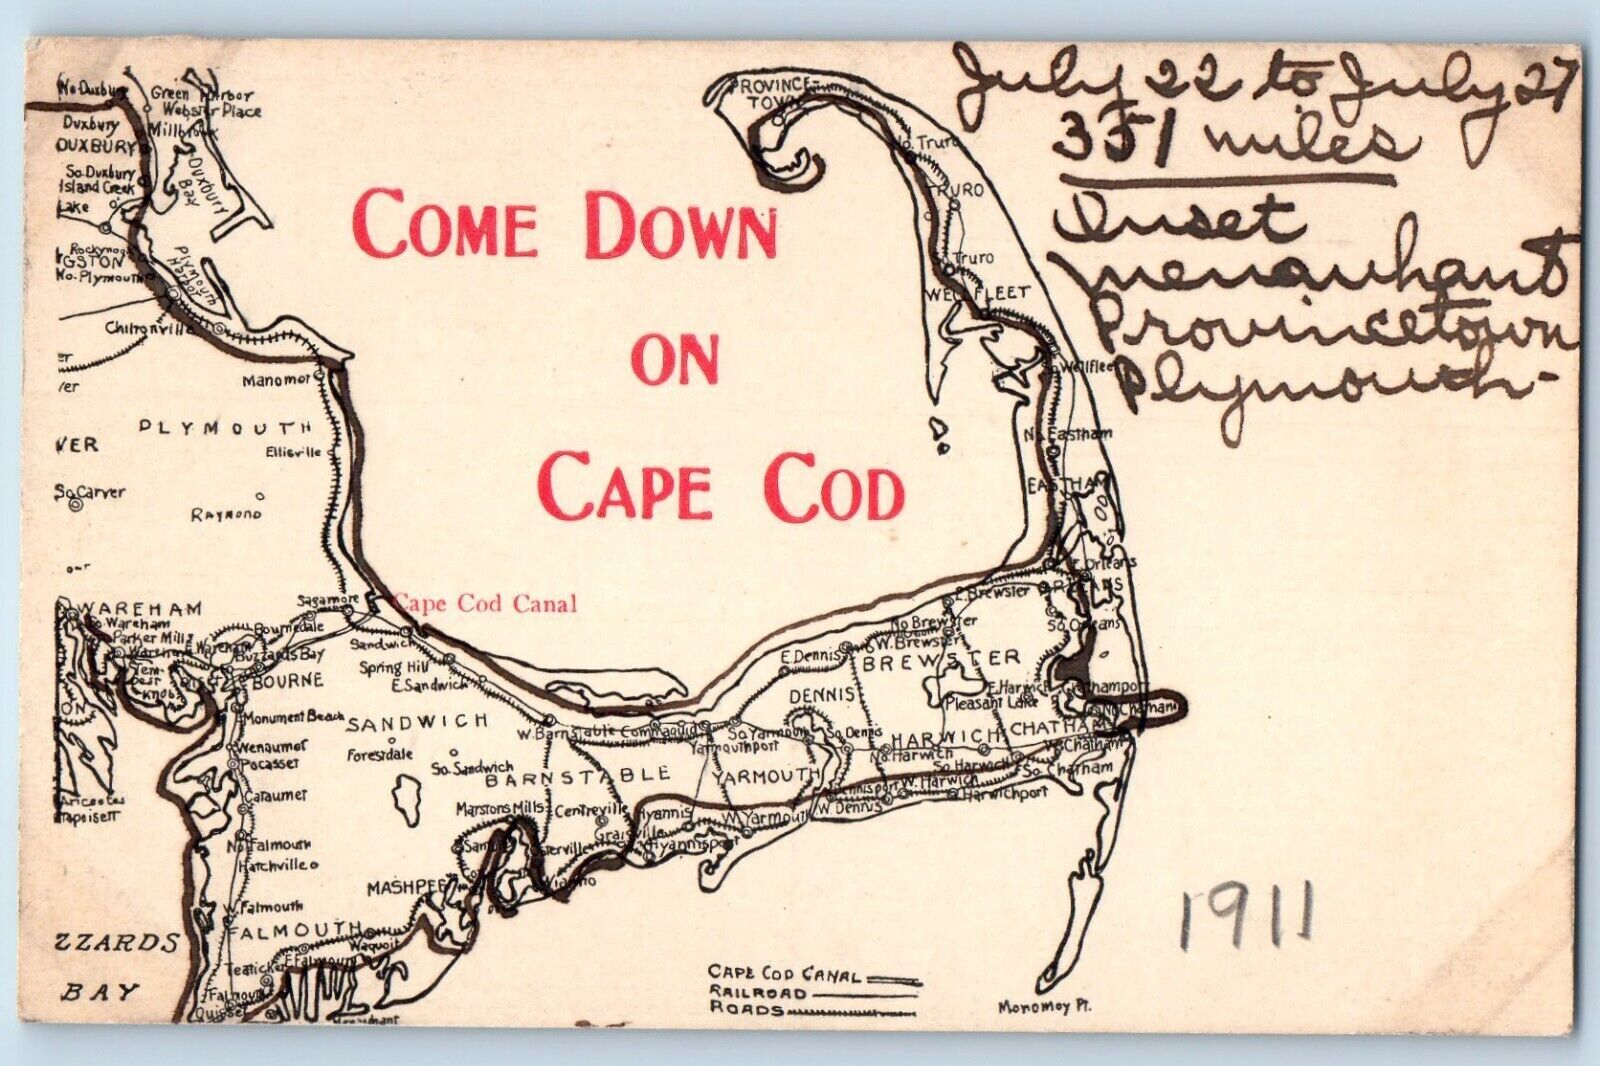 July 22 to July 27
351 miles
Onset
Menauhant
Provincetown
Plymouth-
COME DOWN
ON
CAPE COD
Cape Cod Canal
1911
No Duxbury
Green Harbor
Webster Place
Duxbury
Millbrook
DUXBURY
DUXBURY BAY
So. Duxbury
Island Creek
Lake
GSTON
No. Plymouth
PLYMOUTH
Chiltonville
Manomet
PLYMOUTH
Ellisville
VER
So Carver
RAYMOND
PROVINCE-
TOWN
No. Truro
TRURO
So Truro
WELLFLEET
Wellflee
No. Eastham
EASTHAM
E. Orleans
ORLEANS
So. Orleans
E. Brewster
No Brewster
W. Brewster
BREWSTER
E. Dennis
DENNIS
E. Harwich
Pleasant Lake
Chathamport
No Chatham
CHATHAM
W. Chatham
So. Chatham
HARWICH
No. Harwich
So Harwich
W. Harwich
Harwichport
So Dennis
Dennisport
W. Dennis
So Yarmouth
Yarmouthport
YARMOUTH
W. Yarmouth
Cummaquid
W. Barnstable
BARNSTABLE
Hyannis
Hyannisport
Centreville
Craigville
Osterville
Wianno
Marstons Mills
MASHPEE
WAREHAM
So. Wareham
Parker Mills
Wareham
E. Wareham
Tem-
pest
Knob
Buzzards Bay
Bournedale
Sagamore
BOURNE
Sandwich
Spring Hill
E. Sandwich
SANDWICH
Forestdale
So. Sandwich
Monument Beach
Wenaumet
Pocasset
Cataumet
No. Falmouth
Hatchville
W. Falmouth
FALMOUTH
Waquoit
E. Falmouth
Teaticket
Falmouth
Quisset
ZZARDS
BAY
CAPE COD CANAL
RAILROAD
ROADS
Monomoy Pt.